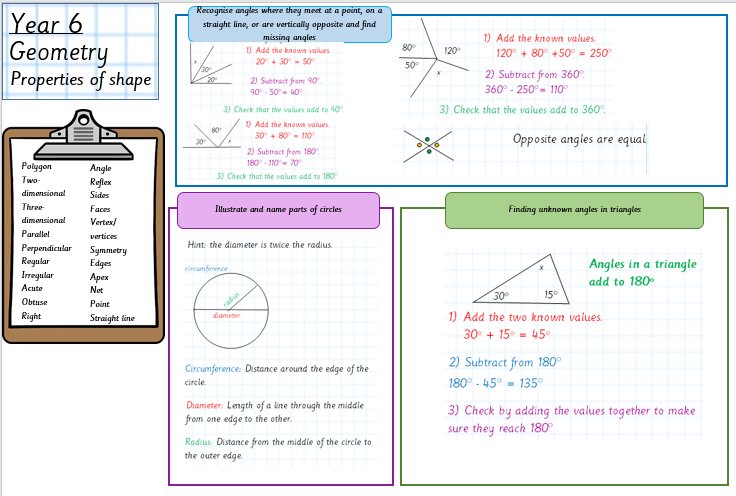 Year 6
Geometry
Properties of shape
Polygon
Two-
dimensional
Three-
dimensional
Parallel
Perpendicular
Regular
Irregular
Acute
Obtuse
Right
Angle
Reflex
Sides
Faces
Vertex/
vertices
Symmetry
Edges
Apex
Net
Point
Straight line
Recognise angles where they meet at a point, on a
straight line, or are vertically opposite and find
missing angles
x
30°
20°
1) Add the known values.
20° + 30° = 50°
2) Subtract from 90°.
90° - 50°= 40°
3) Check that the values add to 90°.
80°
30°
x
1) Add the known values.
30° + 80° = 110°
2) Subtract from 180°.
180° - 110°= 70°
3) Check that the values add to 180°
80°
120°
50°
x
1) Add the known values.
120° + 80° +50° = 250°
2) Subtract from 360°.
360° - 250°= 110°
3) Check that the values add to 360°.
Opposite angles are equal
Illustrate and name parts of circles
Hint: the diameter is twice the radius.
circumference
radius
diameter
Circumference: Distance around the edge of the
circle.
Diameter: Length of a line through the middle
from one edge to the other.
Radius: Distance from the middle of the circle to
the outer edge.
Finding unknown angles in triangles
x
30°
15°
Angles in a triangle
add to 180°
1) Add the two known values.
30° + 15° = 45°
2) Subtract from 180°
180° - 45° = 135°
3) Check by adding the values together to make
sure they reach 180°